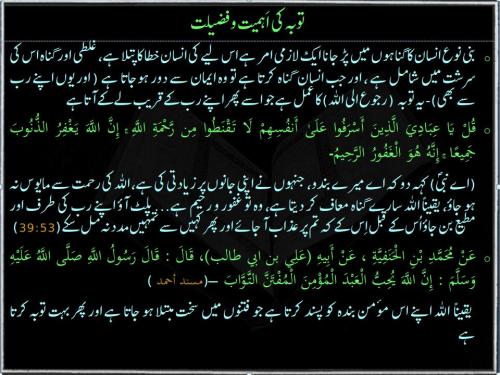 توبہ کی اہمیت و فضیلت
بنی نوع انسان کا گناہوں میں پڑ جانا ایک لازمی امر ہے اس لیے کی انسان خطا کا پتلا ہے، غلطی اور گناہ اس کی
سرشت میں شامل ہے، اور جب انسان گناہ کرتا ہے تو وہ ایمان سے دور ہو جاتا ہے (اور یوں اپنے رب
سے بھی)-یہ توبہ (رجوع الی اللہ) کا عمل ہے جو اسے پھر اپنے رب کے قریب لے کے آتا ہے
قُلْ يَا عِبَادِيَ الَّذِينَ أَسْرَفُوا عَلَىٰ أَنفُسِهِمْ لَا تَقْنَطُوا مِن رَّحْمَةِ اللَّهِ ۚ إِنَّ اللَّهَ يَغْفِرُ الذُّنُوبَ
جَمِيعًا ۚ إِنَّهُ هُوَ الْغَفُورُ الرَّحِيمُ-
(اے نبیؐ) کہہ دو کہ اے میرے بندو، جنہوں نے اپنی جانوں پر زیادتی کی ہے، اللہ کی رحمت سے مایوس نہ
ہو جاؤ، یقیناً اللہ سارے گناہ معاف کر دیتا ہے، وہ تو غفور و رحیم ہے ... پلٹ آؤ اپنے رب کی طرف اور
مطیع بن جاؤ اُس کے قبل اِس کے کہ تم پر عذاب آ جائے اور پھر کہیں سے تمہیں مدد نہ مل سکے (39:53)
عَنْ مُحَمَّدِ بْنِ الْحَنَفِيَّةِ ، عَنْ أَبِيهِ (علی بن ابی طالب)، قَالَ : قَالَ رَسُولُ اللَّهِ صَلَّى اللَّهُ عَلَيْهِ
وَسَلَّمَ : إِنَّ اللَّهَ يُحِبُّ الْعَبْدَ الْمُؤْمِنَ الْمُفَتَّنَ التَّوَّابَ – (مسند أحمد)
یقیناً اللہ اپنے اس مؤمن بندہ کو پسند کرتا ہے جو فتنوں میں سخت مبتلا ہو جاتا ہے اور پھر بہت توبہ کرتا
ہے